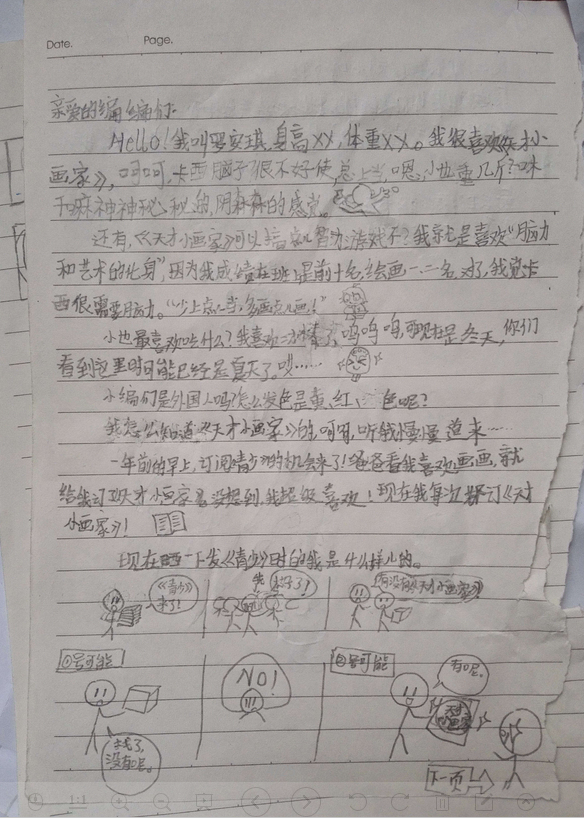 Date. Page.
亲爱的编编们:
Hello!我叫罗安琪,身高XX,体重XX。我很喜欢《天才小
画家》,呵呵,卡西脑子很不好使,总上当,嗯,小也重几斤?咪
和麻神神秘秘的,阴森森的感觉。
还有,《天才小画家》可以搞点儿智力游戏不?我就是喜欢“脑力
和艺术的化身”,因为我成绩在班是前十名,绘画一、二名,对了,我觉卡
西很需要脑力。“少上点儿当,多画点儿画!”
小也最喜欢吃什么?我喜欢冰棒了,呜呜呜,可现在是冬天,你们
看到这里时可能已经是夏天了。哎……
小编们是外国人吗?怎么发色是黄、红、色呢?
我怎么知道《天才小画家》的,呵呵,听我慢慢道来……
一年前的早上,订阅《青少》的机会来了!爸爸看我喜欢画画,就
给我订了天才小画家,没想到,我超级喜欢!现在我每次都订《天才
小画家》!
现在晒一下发《青少》时的我是什么样儿的。
《青少》来了!
发好了!
有没有《天才小画家》
①号可能
NO!
②号可能
有呢。
没有呢。
下一页